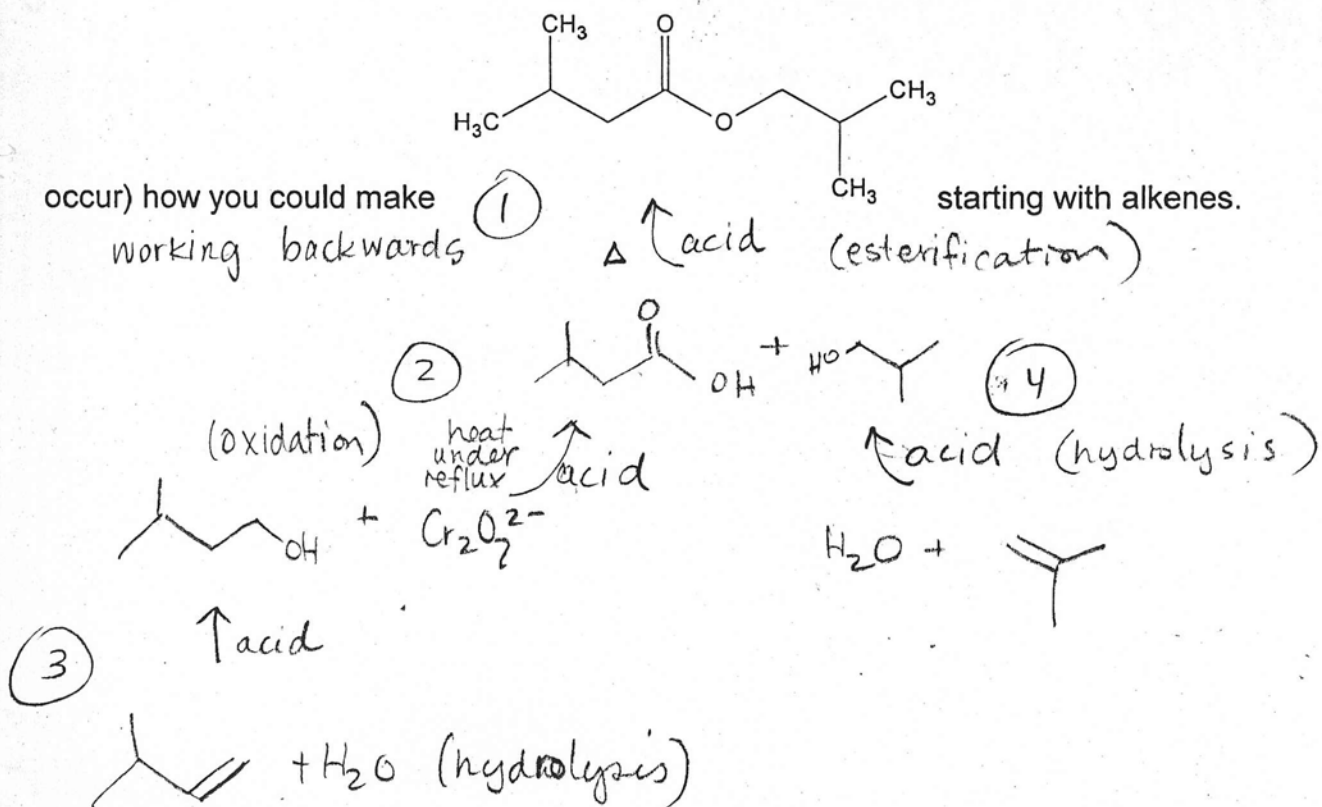 CH₃ O
H₃C O CH₃
CH₃
occur) how you could make ① starting with alkenes.
working backwards Δ ↑ acid (esterification)
② O OH + HO ④
(oxidation) heat under reflux ↑ acid ↑ acid (hydrolysis)
OH + Cr₂O₇²⁻ H₂O +
↑ acid
③
+ H₂O (hydrolysis)